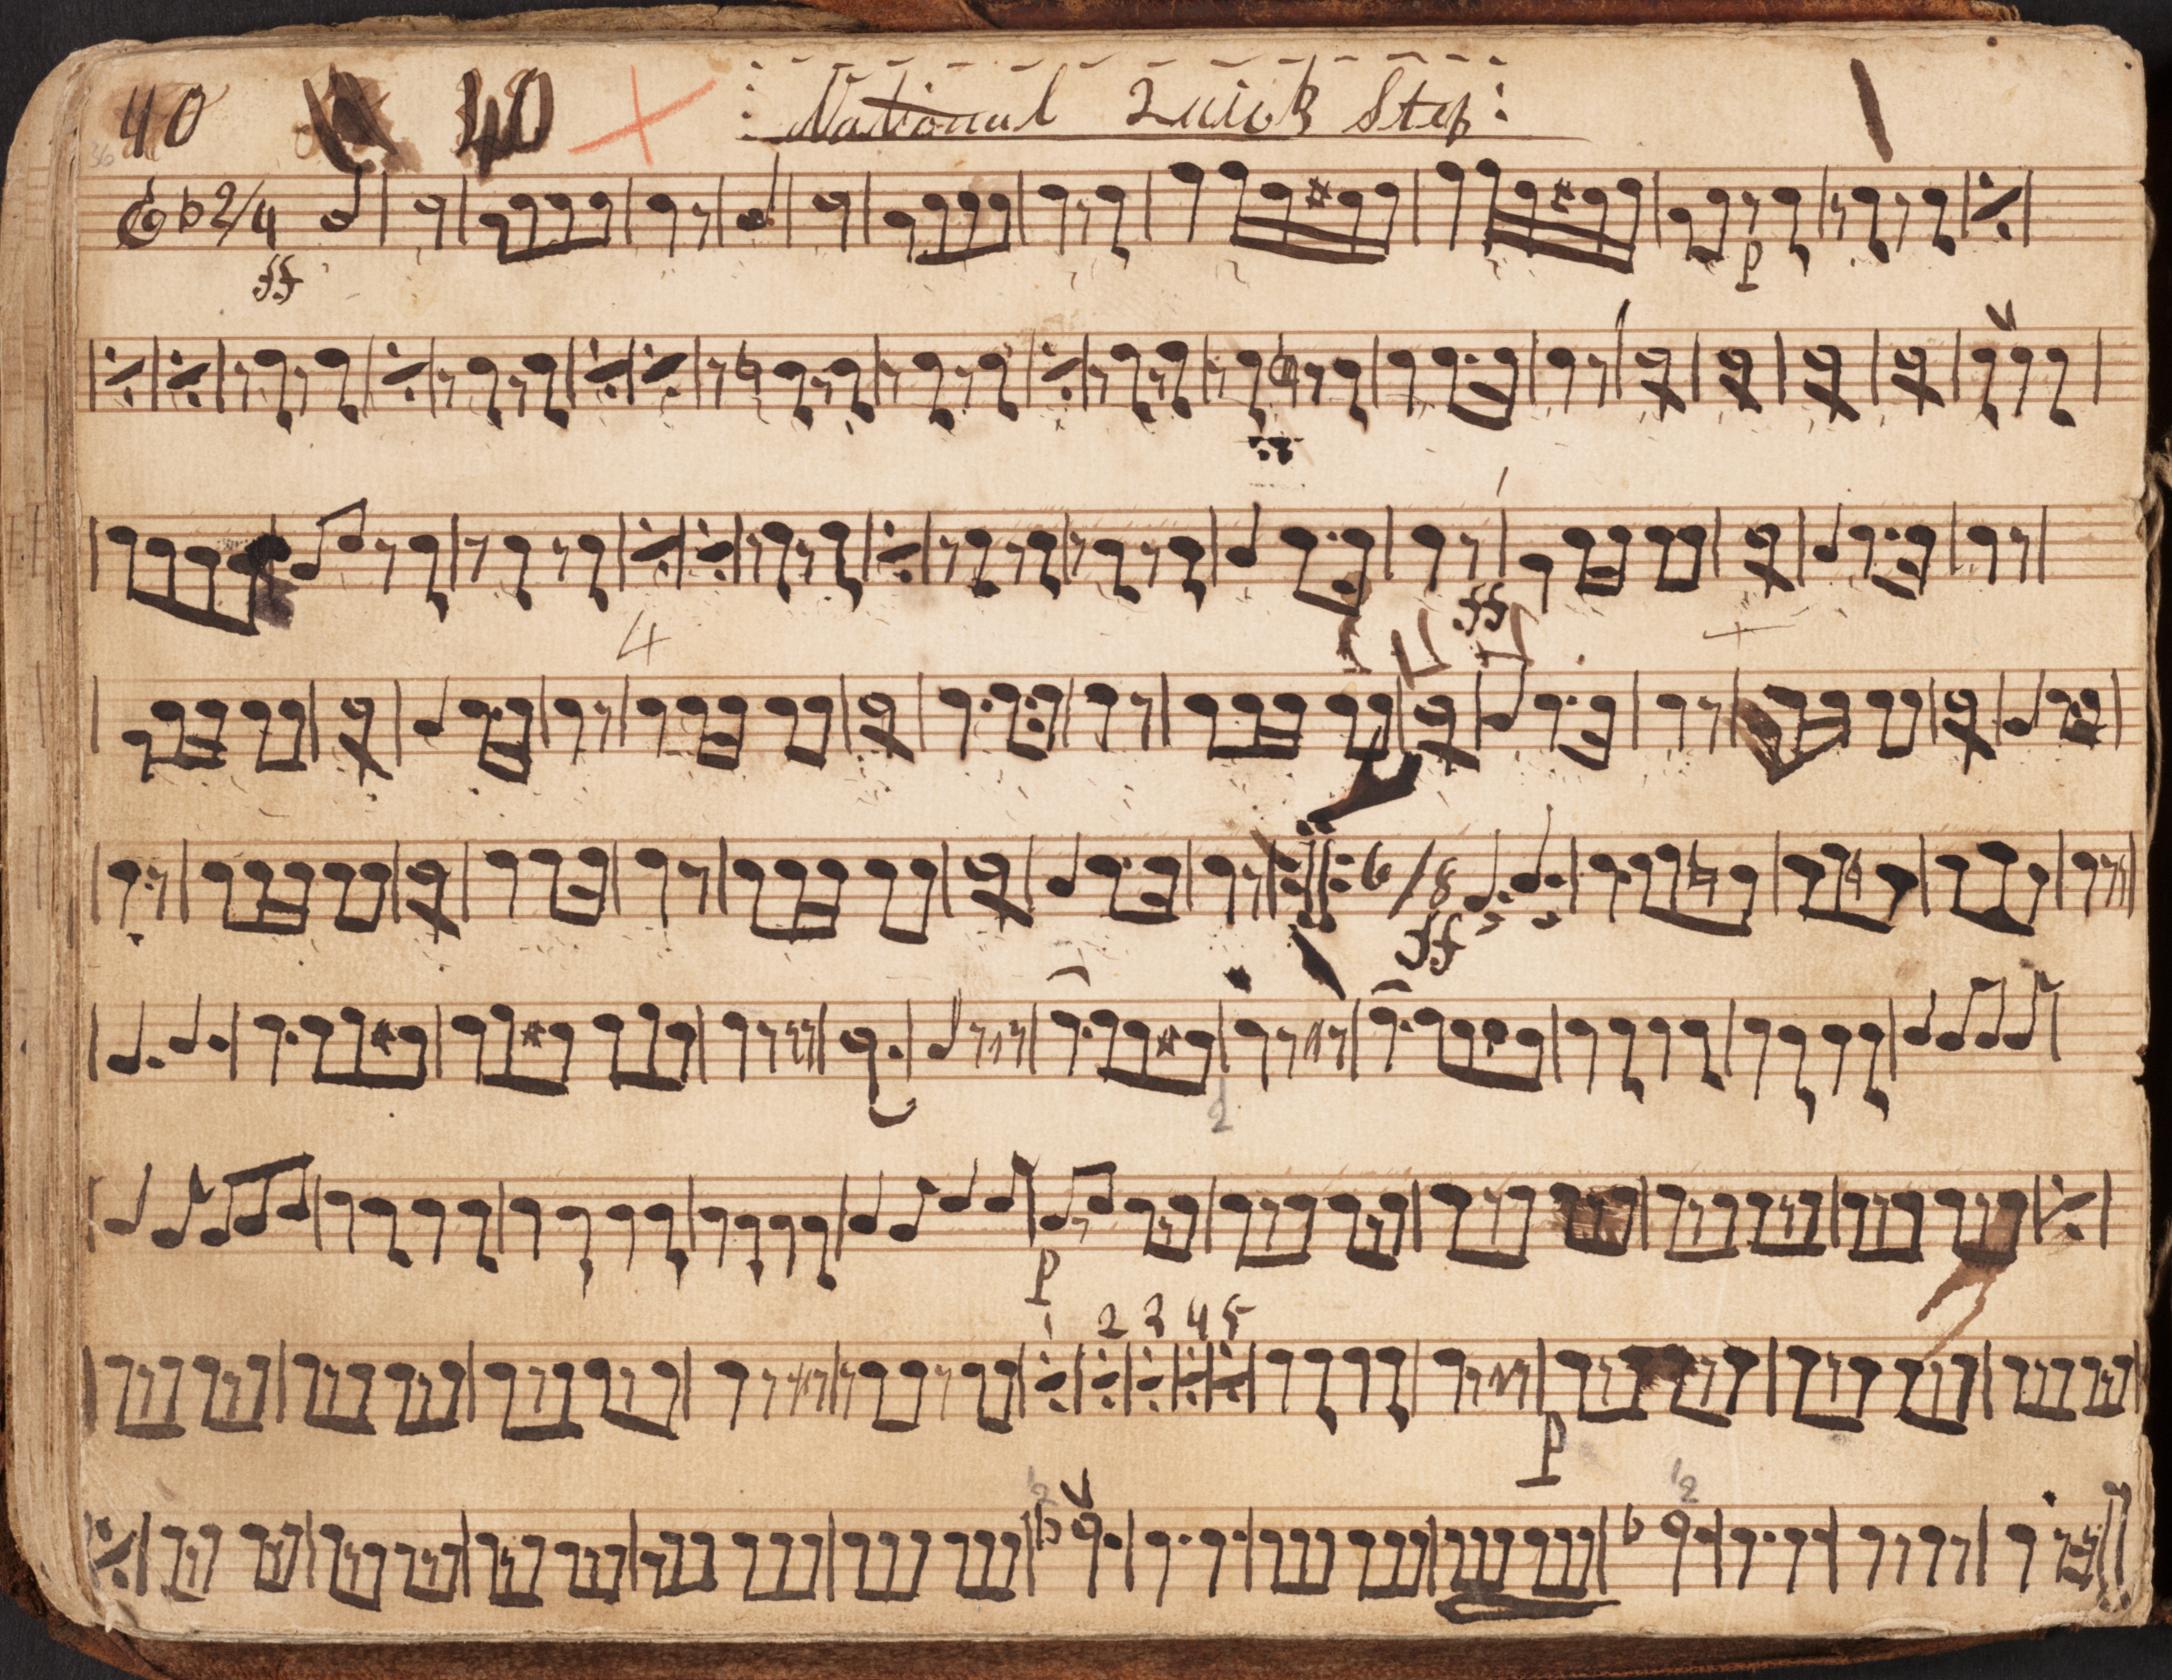 40 40 National Quick Step
2/4
ff
P
4
ff
6/8
ff
2
P
1 2 3 4 5
P
2 2